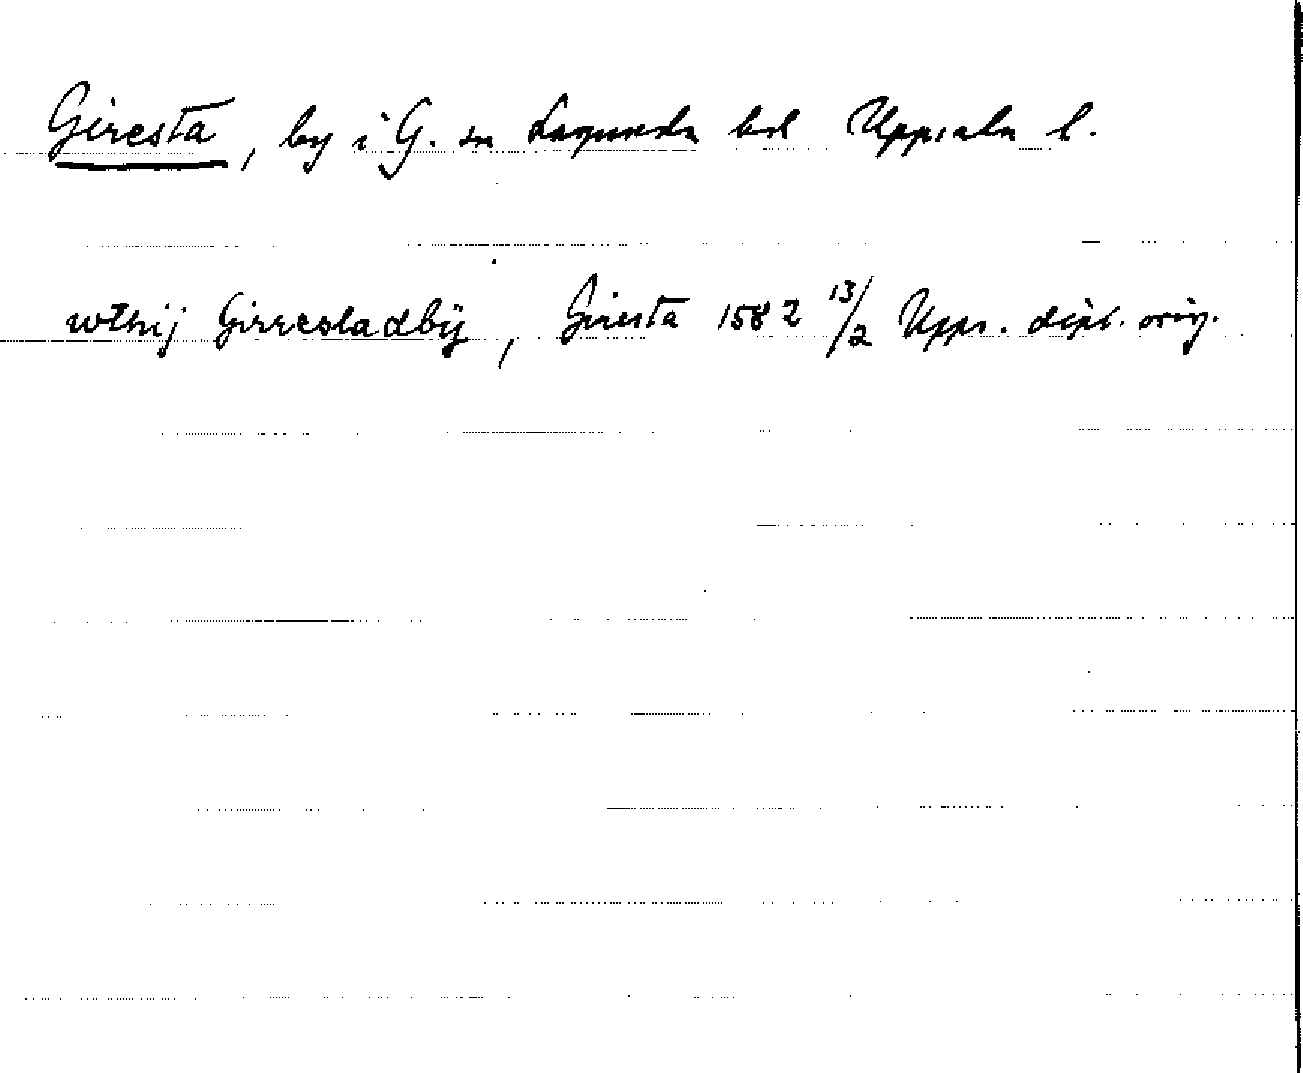 Giresta, by i G. sn Lagunda hd Uppsala l.
wthij Girrestadbÿ, Giresta 1582 13/2 Upps. dipl. orig.